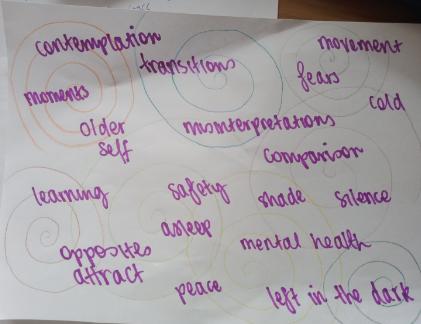 contemplation
movement
transitions
fears
moments
cold
older
self
misinterpretations
comparison
learning
safety
shade
silence
asleep
mental health
opposites
attract
peace
left in the dark